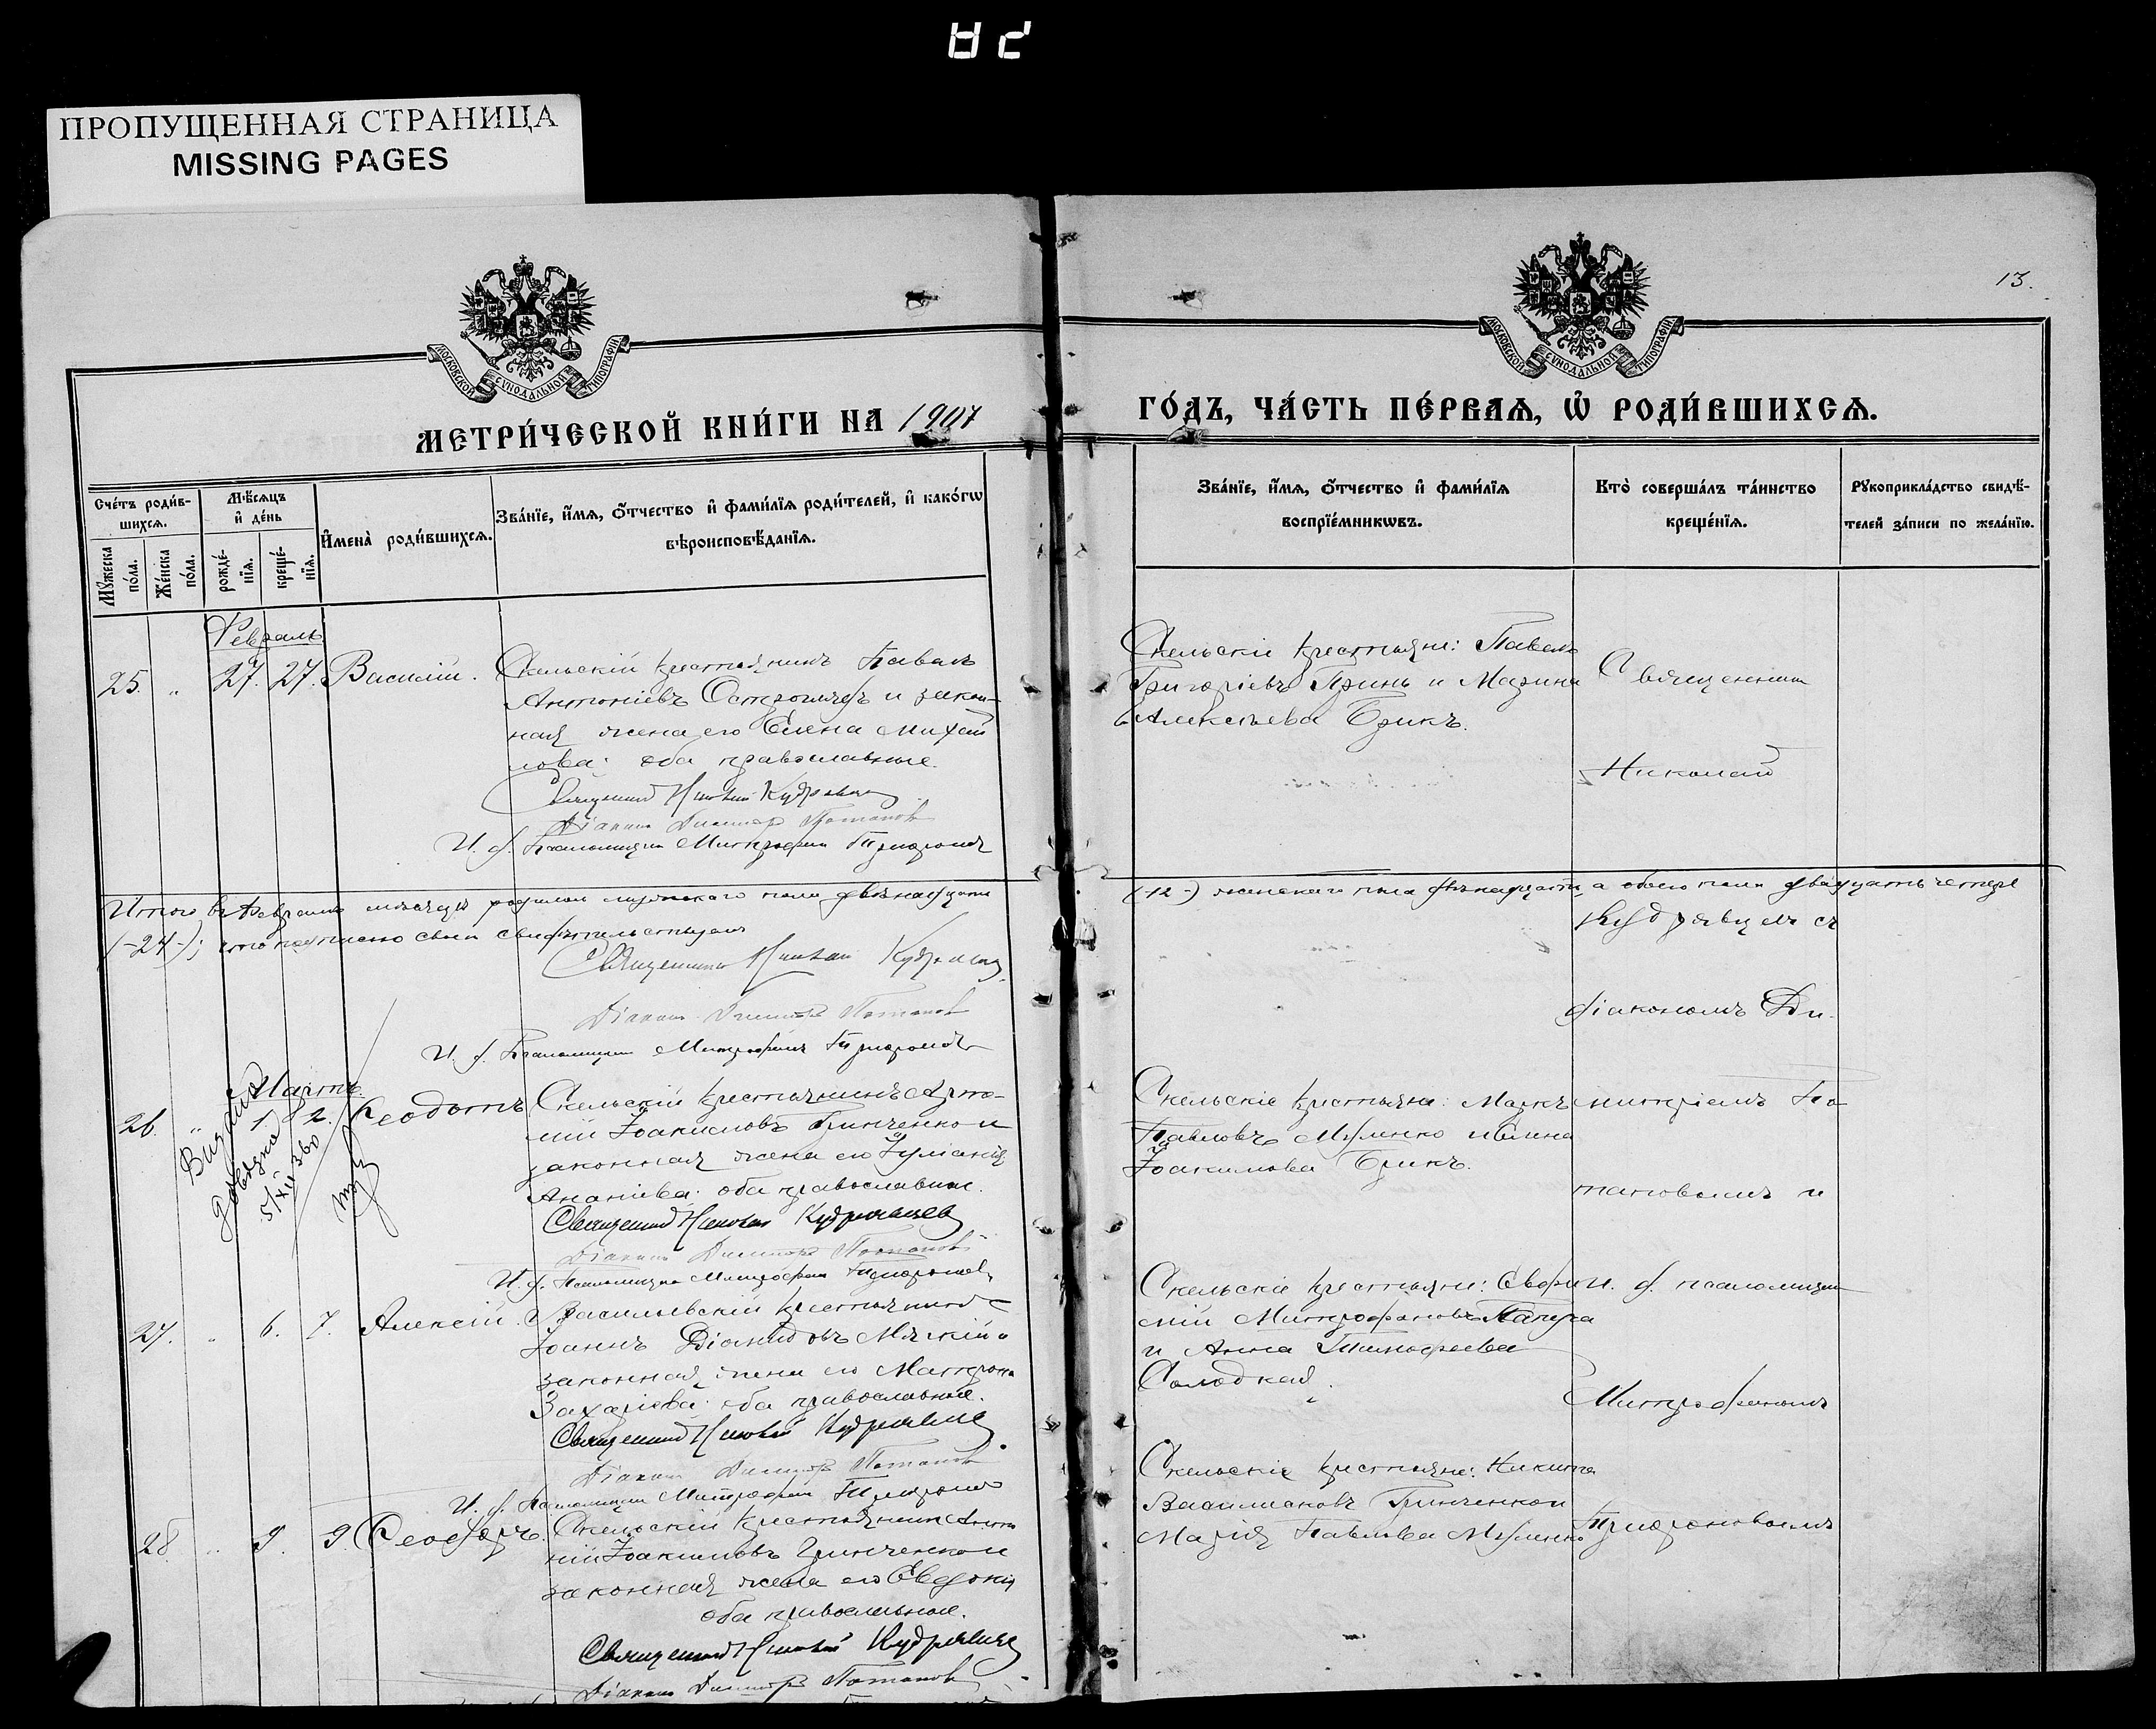 ПРОПУЩЕННАЯ СТРАНИЦА
MISSING PAGES
13.
МОСКОВСКОЙ СѴНОДАЛЬНОЙ ТИПОГРАФІИ
МОСКОВСКОЙ СѴНОДАЛЬНОЙ ТИПОГРАФІИ
МЕТРИ́ЧЕСКОЙ КНИ́ГИ НА 1907
ГО́ДЪ, ЧА́СТЬ ПЕ́РВАѦ, Ѡ҆ РОДИ́ВШИХСѦ.
Сче́тъ роди́в-
шихсѧ.
Мꙋ́жеска по́ла.
Же́нска по́ла.
Мѣ́сѧцъ
и҆ де́нь
рожде́-
нїѧ.
креще́-
нїѧ.
И҆мена̀ роди́вшихсѧ.
Зва́нїе, и҆́мѧ, ѻ҆́тчество и҆ фами́лїѧ роди́телей, и҆ како́гѡ
вѣроисповѣ́данїѧ.
Зва́нїе, и҆́мѧ, ѻ҆́тчество и҆ фами́лїѧ
воспрїе́мникѡвъ.
Кто̀ соверша́лъ та́инство
креще́нїѧ.
Рꙋкоприкла́дство свидѣ́-
телей за́писи по жела́нїю.
Февраль
25. „ 27. 27. Василій.
Скельскій крестьянинъ Павелъ
Антоніевъ Остроушко и закон-
ная жена его Елена Михай
лова: оба православные.
Священникъ Николай Кудрявцевъ
Діаконъ Димитрій Потаповъ
И. д. Псаломщика Митрофанъ
Скельскіе крестьяне: Павелъ
Григоріевъ Принь и Марина
Алексѣева Брикъ.
Священникъ
Николай
Итого въ Февралѣ мѣсяцѣ родилось мужескаго пола двѣнадцать
(-12-) женскаго пола двѣнадцать, а обоего пола двадцать четыре
(-24-); что подписью своею свидѣтельствуемъ
Священникъ Николай Кудрявцевъ
Діаконъ Димитрій Потаповъ
И. д. Псаломщика Митрофанъ
Кудрявцевъ съ
діакономъ Ди-
Мартъ.
26. „ 1. 2. Ѳеодотъ
Скельскій крестьянинъ
Іоакимовъ Гринченко и
законная жена его Іуліанія
Ананіева: оба православные.
Священникъ Николай Кудрявцевъ
Діаконъ Димитрій Потаповъ
И. д. Псаломщика Митрофанъ
Видана
довідка
5/XII 360
Скельскіе крестьяне: Маркъ
Павловъ Муленко и Елена
Іоакимова Брикъ.
митріемъ По
таповымъ и
27. „ 6. 7. Алексій.
Васильевскій крестьянинъ
Іоаннъ Діомидовъ Мягкій и
законная жена его Матрона
Захаріева: оба православные.
Священникъ Николай Кудрявцевъ
Діаконъ Димитрій Потаповъ
И. д. Псаломщика Митрофанъ
Скельскіе крестьяне: Евфи
мій Митрофановъ
и Анна Тимофеева
Солодкая.
и. д. псаломщика
Митрофаномъ
28. „ 9. 9. Ѳеодоръ.
Скельскій крестьянинъ Анто
ній Іоакимовъ Гринченко и
законная жена его Евдокія
оба православные.
Священникъ Николай Кудрявцевъ
Діаконъ Димитрій Потаповъ
Скельскіе крестьяне: Никита
Гринченко и
Марія Павлова Муленко